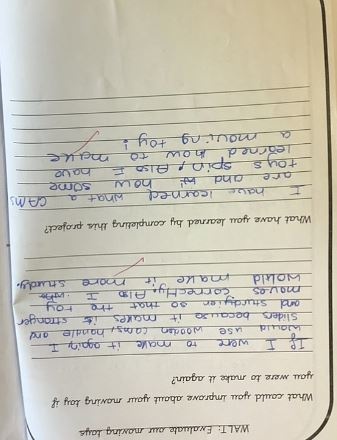 WALT: Evaluate our moving toys
What could you improve about your moving toy if
you were to make it again?
If I were to make it again, I
would use wooden cams, handle and
sliders because it makes it stronger
and sturdier so that the toy
moves correctly. Also, I
would make it more sturdy.
What have you learned by completing this project?
I have learned what a CAMs
are and how some
toys spin. Also I have
learned how to make
a moving toy!